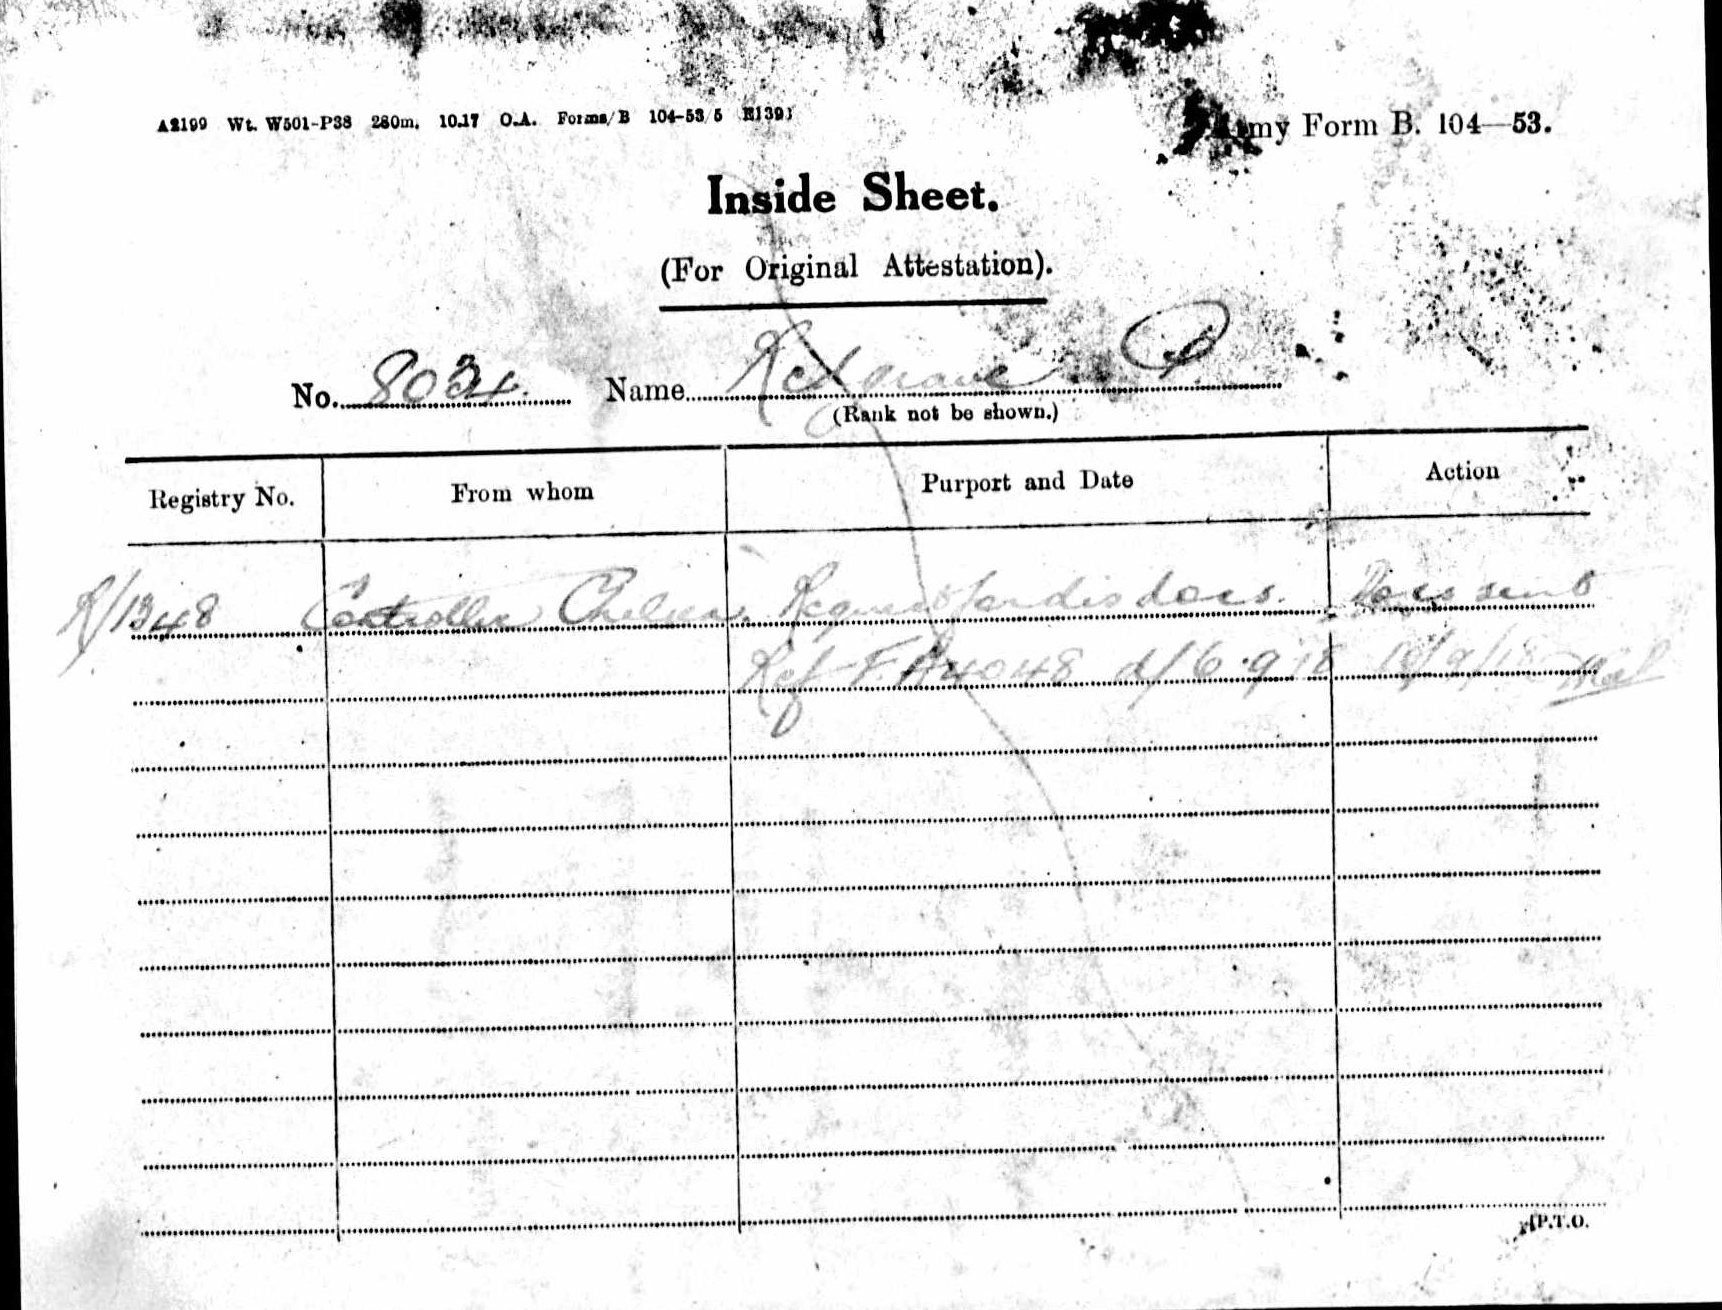 A2199 Wt. W501-P38 280m. 10.17 O.A. Forms/B 104-53/5 E1391
Army Form B. 104—53.
Inside Sheet.
(For Original Attestation).
No. 8034. Name Redgrave P
(Rank not be shown.)
Registry No. From whom Purport and Date Action
R/1348 Controller Chelsea. Request for dis docs. Docs sent
Ref F.A4048 d/6.9.18 /9/18
P.T.O.